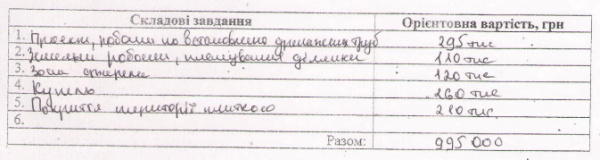 Складові завдання Орієнтовна вартість, грн
1. Проекти, роботи по встановленню дренажних труб 295 тис
2. Земельні роботи, планування ділянки 110 тис
3. Зона 120 тис
4. Купель 260 тис
5. Покриття території плиткою 210 тис
6.
Разом: 995 000